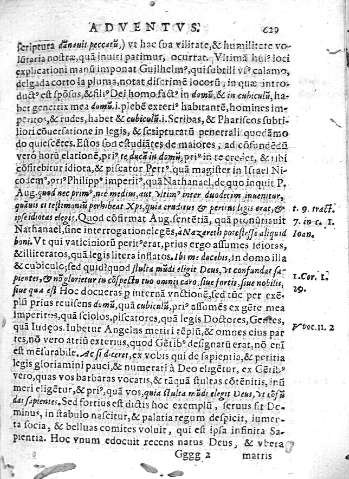 ADVENTVS. 629
scriptura dānauit peccatū,) vt hac sua vilitate, & humilitete vo-
lūtaria nostræ, quā inuiti patimur, ocurrat. Vltimā huiꝰ loci
explicationi manū imponat Guilhelmꝰ, qui subtili vsꝰ calamo,
delgada corto la pluma, notat discrimē locorū, in quæ intro-
ductꝰ est spōsus, & filiꝰ Dei homo factꝰ in domū, & in cubiculū, ha-
bet genetrix mea domū. i. plebē exteri habitantē, homines im-
peritos, & rudes, habet & cubiculū. i. Scribas, & Phariseos subti-
liori cōuersatione in legis, & scripturarū penetrali quodāmo
do quiescētes. Estos son estudiātes de maiores, ad cōfundendū
verò horū elationē, priꝰ te ducā in domū, priꝰ in te credet, & tibi
cōfitebitur idiota, & piscator Petrꝰ. quā magister in Israel Ni
codemꝰ, priꝰ Philippꝰ imperitꝰ, quā Nathanael, de quo inquit P.
Aug. quod nec primꝰ, nec mediꝰ, aut vltimꝰ inter duodecim inuenitur,
quāuis ei testimoniū perhibeat Xpꝰ, quia eruditus & peritꝰ in legis erat, &
ipse idiotas elegit. Quod cōfirmat Aug. sentētiā, quā ponūt
Nathanael, sine interrogatione legēs, à Nazareth potest esse aliquid
boni. Vt qui vaticiniorū peritꝰ erat, prius ergo assumes idiotas,
& illiteratos, quā legis litera inflatos. Ibi me docebis, in domo illa
& cubiculo; sed quid? quod stulta mūdi elegit Deus, vt confundat sa-
pientes, & nō glorietur in cōspectu tuo omnis caro, siue fortis, siue nobilis,
siue quā est Hoc docueras priꝰ interna vnctione, sed tūc per exē-
plū prius reuisens domū, quā cubiculū, priꝰ assumēs ex gēte mea
Imperitos, quā sciolos, piscatores, quā legis Doctores, Gentes,
quā Iudęos. Iubetur Angelus metiri rēplū, & omnes eius par
tes, nō vero atriū exterius, quod Gētibꝰ designarū erat, nō eni
est mēsurabile. Ac si diceret, ex vobis qui de sapientia, & peritia
legis gloriamini pauci, & numerati à Deo eligētur, ex Gētibꝰ
vero, quas vos barbaras vocatis, & tāquā stultas cōtēnitis, inū
meri eligētur, & priꝰ quā vos, quia stulta mūdi elegit Deus, vt cōfū
dat sapientes. Sed fortius est dictis hoc exemplū, seruus sit Do-
minus, in stabulo nascitur, & palatia regum despicit, iumen-
ta socia, & belluas comites voluit, qui est ipsa infinita Sa-
pientia. Hoc vnum edocuit recens natus Deus, & vbera
Gggg 2 matris
t. 9. tract.
7. in c. 1.
Ioan.
1. Cor. 1.
29.
Apoc. 11. 2